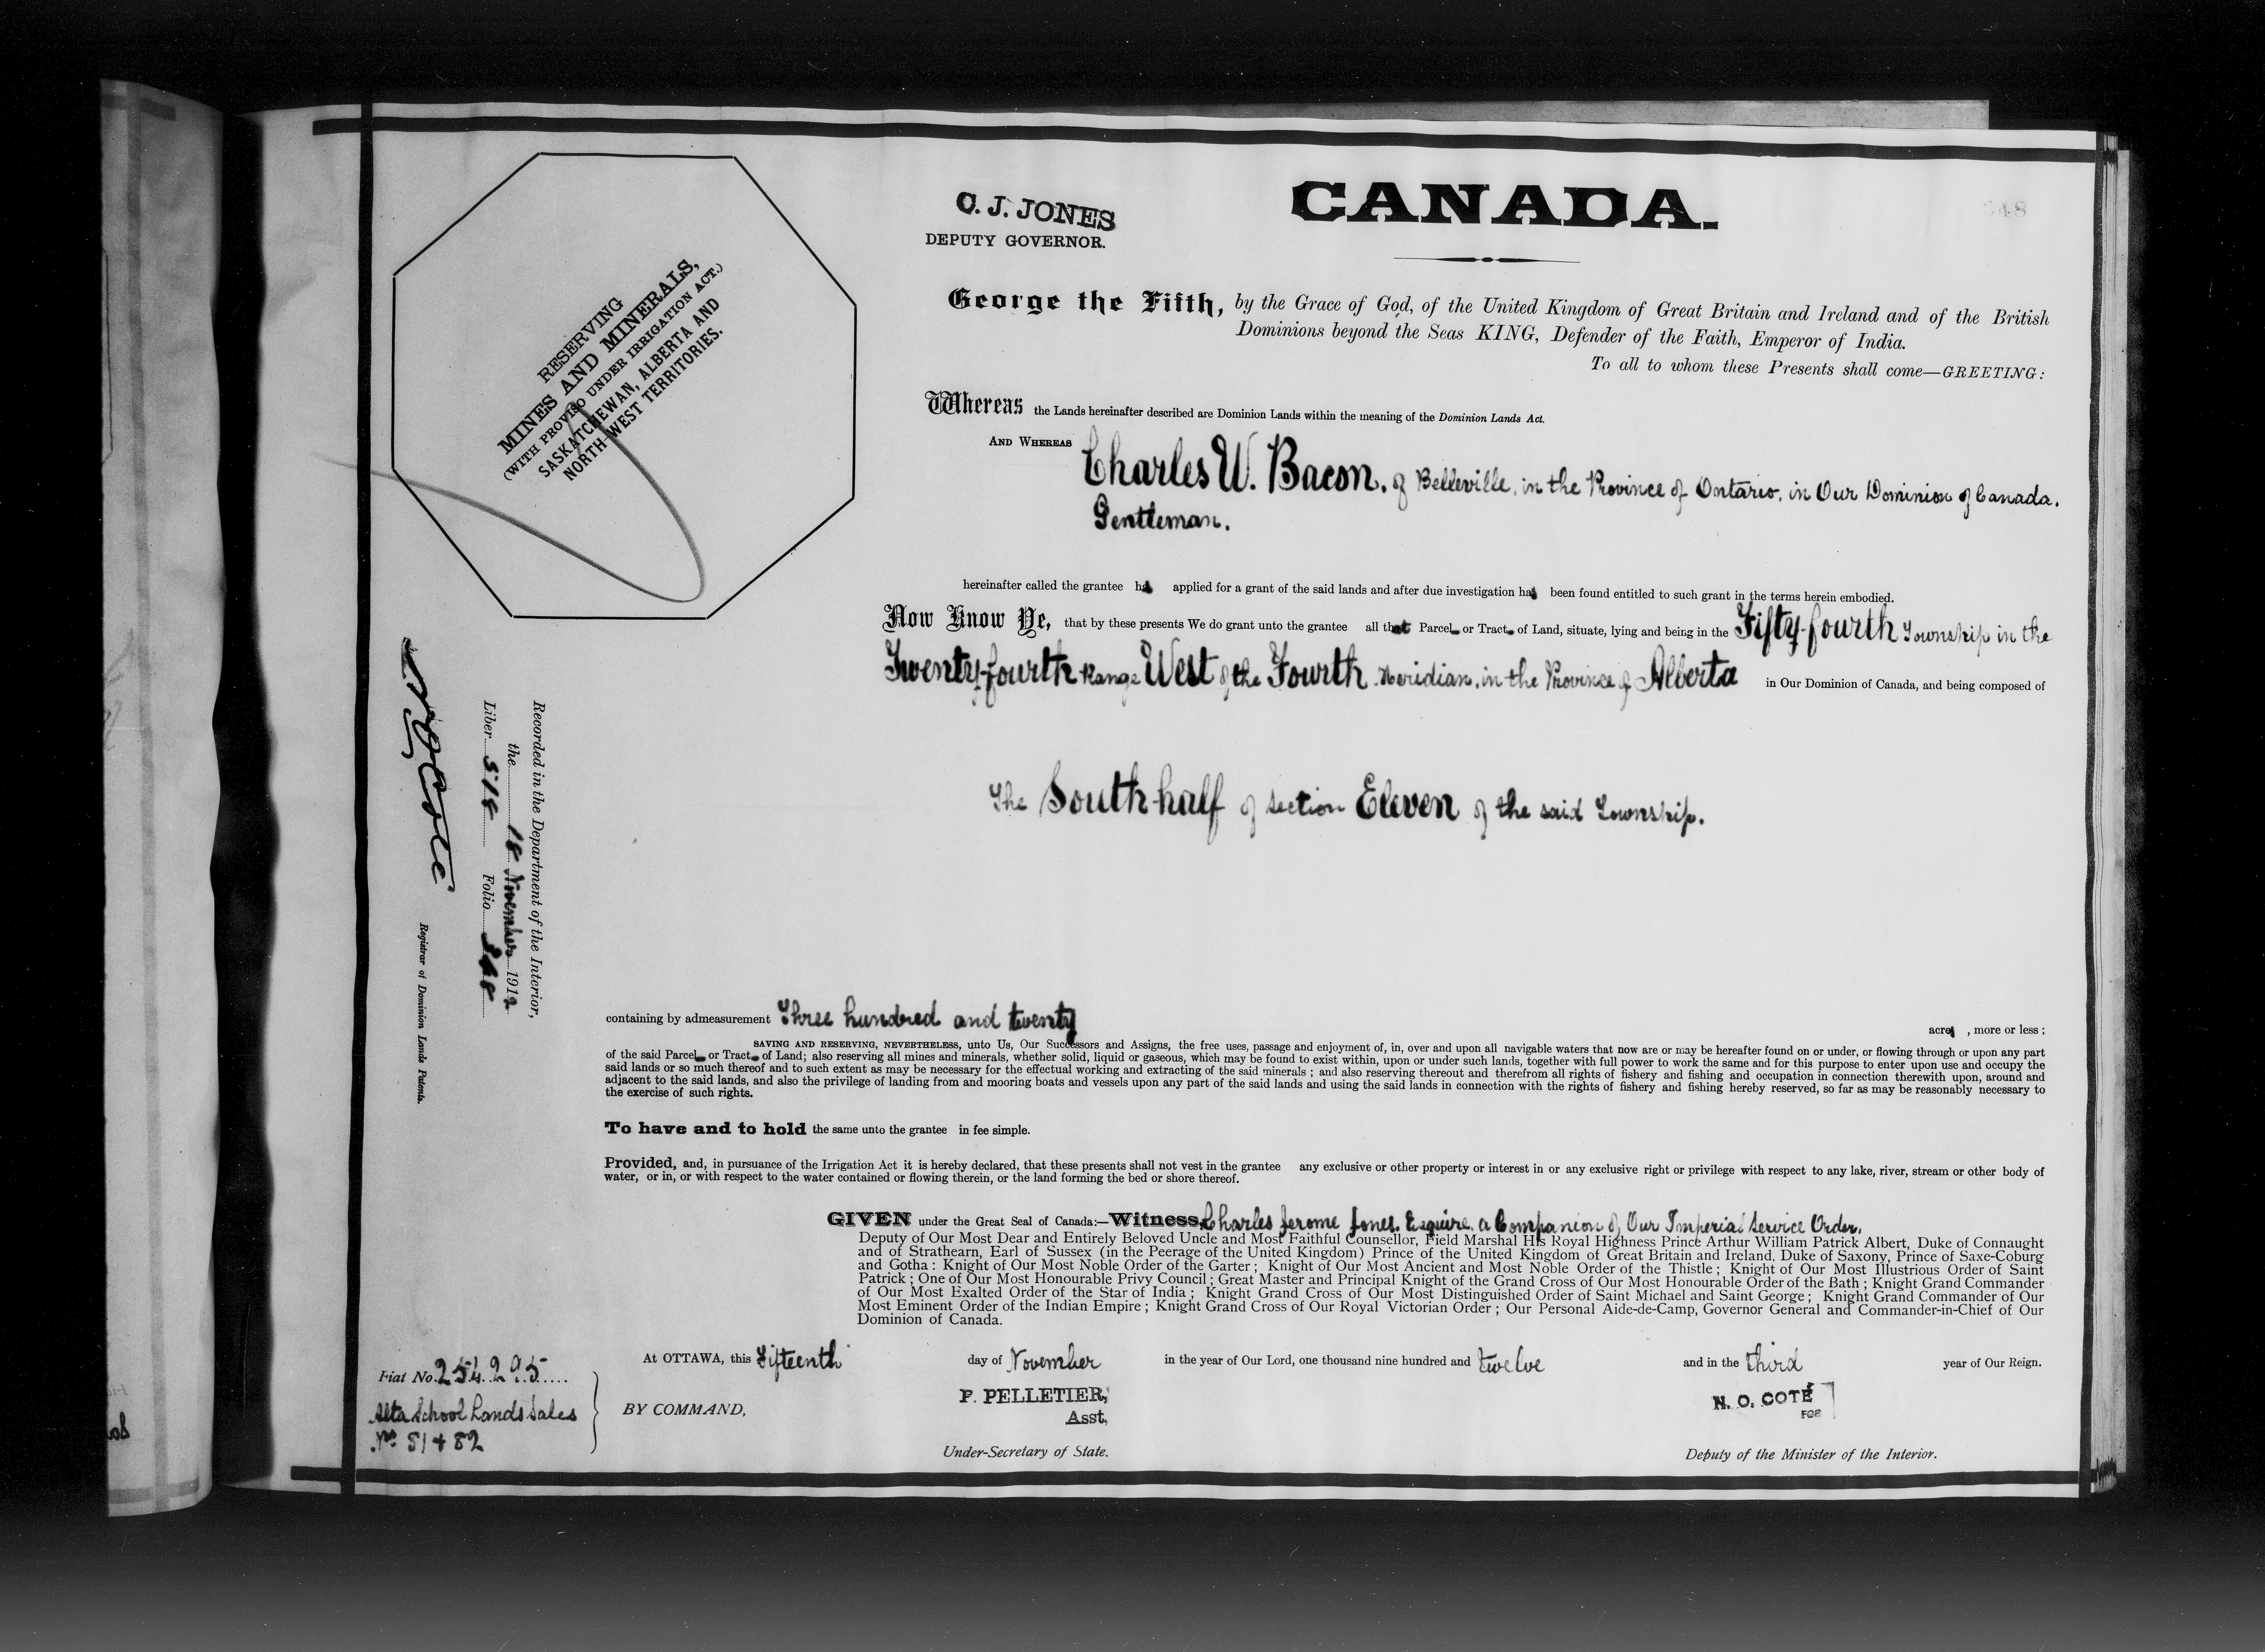 C. J. JONES
DEPUTY GOVERNOR.
CANADA.
348
RESERVING
MINES AND MINERALS,
(WITH PROVISO UNDER IRRIGATION ACT.)
SASKATCHEWAN, ALBERTA AND
NORTH-WEST TERRITORIES.
George the Fifth, by the Grace of God, of the United Kingdom of Great Britain and Ireland and of the British
Dominions beyond the Seas KING, Defender of the Faith, Emperor of India.
To all to whom these Presents shall come—GREETING:
Whereas the Lands hereinafter described are Dominion Lands within the meaning of the Dominion Lands Act.
AND WHEREAS Charles W. Bacon, of Belleville, in the Province of Ontario, in Our Dominion of Canada.
Gentleman.
hereinafter called the grantee has applied for a grant of the said lands and after due investigation has been found entitled to such grant in the terms herein embodied.
Now Know Ye, that by these presents We do grant unto the grantee all that Parcel or Tract of Land, situate, lying and being in the Fifty-fourth Township in the
Twenty-fourth Range West of the Fourth Meridian, in the Province of Alberta in Our Dominion of Canada, and being composed of
The South half of section Eleven of the said Township.
Recorded in the Department of the Interior,
the 18 November 1912
Liber 518 Folio 348
N O Coté
Registrar of Dominion Lands Patents.
containing by admeasurement Three hundred and twenty acres, more or less;
SAVING AND RESERVING, NEVERTHELESS, unto Us, Our Successors and Assigns, the free uses, passage and enjoyment of, in, over and upon all navigable waters that now are or may be hereafter found on or under, or flowing through or upon any part
of the said Parcel or Tract of Land; also reserving all mines and minerals, whether solid, liquid or gaseous, which may be found to exist within, upon or under such lands, together with full power to work the same and for this purpose to enter upon use and occupy the
said lands or so much thereof and to such extent as may be necessary for the effectual working and extracting of the said minerals; and also reserving thereout and therefrom all rights of fishery and fishing and occupation in connection therewith upon, around and
adjacent to the said lands, and also the privilege of landing from and mooring boats and vessels upon any part of the said lands and using the said lands in connection with the rights of fishery and fishing hereby reserved, so far as may be reasonably necessary to
the exercise of such rights.
To have and to hold the same unto the grantee in fee simple.
Provided, and, in pursuance of the Irrigation Act it is hereby declared, that these presents shall not vest in the grantee any exclusive or other property or interest in or any exclusive right or privilege with respect to any lake, river, stream or other body of
water, or in, or with respect to the water contained or flowing therein, or the land forming the bed or shore thereof.
GIVEN under the Great Seal of Canada:—Witness, Charles Jerome Jones, Esquire, a Companion of Our Imperial Service Order,
Deputy of Our Most Dear and Entirely Beloved Uncle and Most Faithful Counsellor, Field Marshal His Royal Highness Prince Arthur William Patrick Albert, Duke of Connaught
and of Strathearn, Earl of Sussex (in the Peerage of the United Kingdom) Prince of the United Kingdom of Great Britain and Ireland, Duke of Saxony, Prince of Saxe-Coburg
and Gotha: Knight of Our Most Noble Order of the Garter; Knight of Our Most Ancient and Most Noble Order of the Thistle; Knight of Our Most Illustrious Order of Saint
Patrick; One of Our Most Honourable Privy Council; Great Master and Principal Knight of the Grand Cross of Our Most Honourable Order of the Bath; Knight Grand Commander
of Our Most Exalted Order of the Star of India; Knight Grand Cross of Our Most Distinguished Order of Saint Michael and Saint George; Knight Grand Commander of Our
Most Eminent Order of the Indian Empire; Knight Grand Cross of Our Royal Victorian Order; Our Personal Aide-de-Camp, Governor General and Commander-in-Chief of Our
Dominion of Canada.
At OTTAWA, this Fifteenth day of November in the year of Our Lord, one thousand nine hundred and twelve and in the third year of Our Reign.
Fiat No. 254295
Alta School Lands Sales
Nos 81 & 82
BY COMMAND,
P. PELLETIER,
Asst.
Under-Secretary of State.
N. O. COTÉ
FOR
Deputy of the Minister of the Interior.